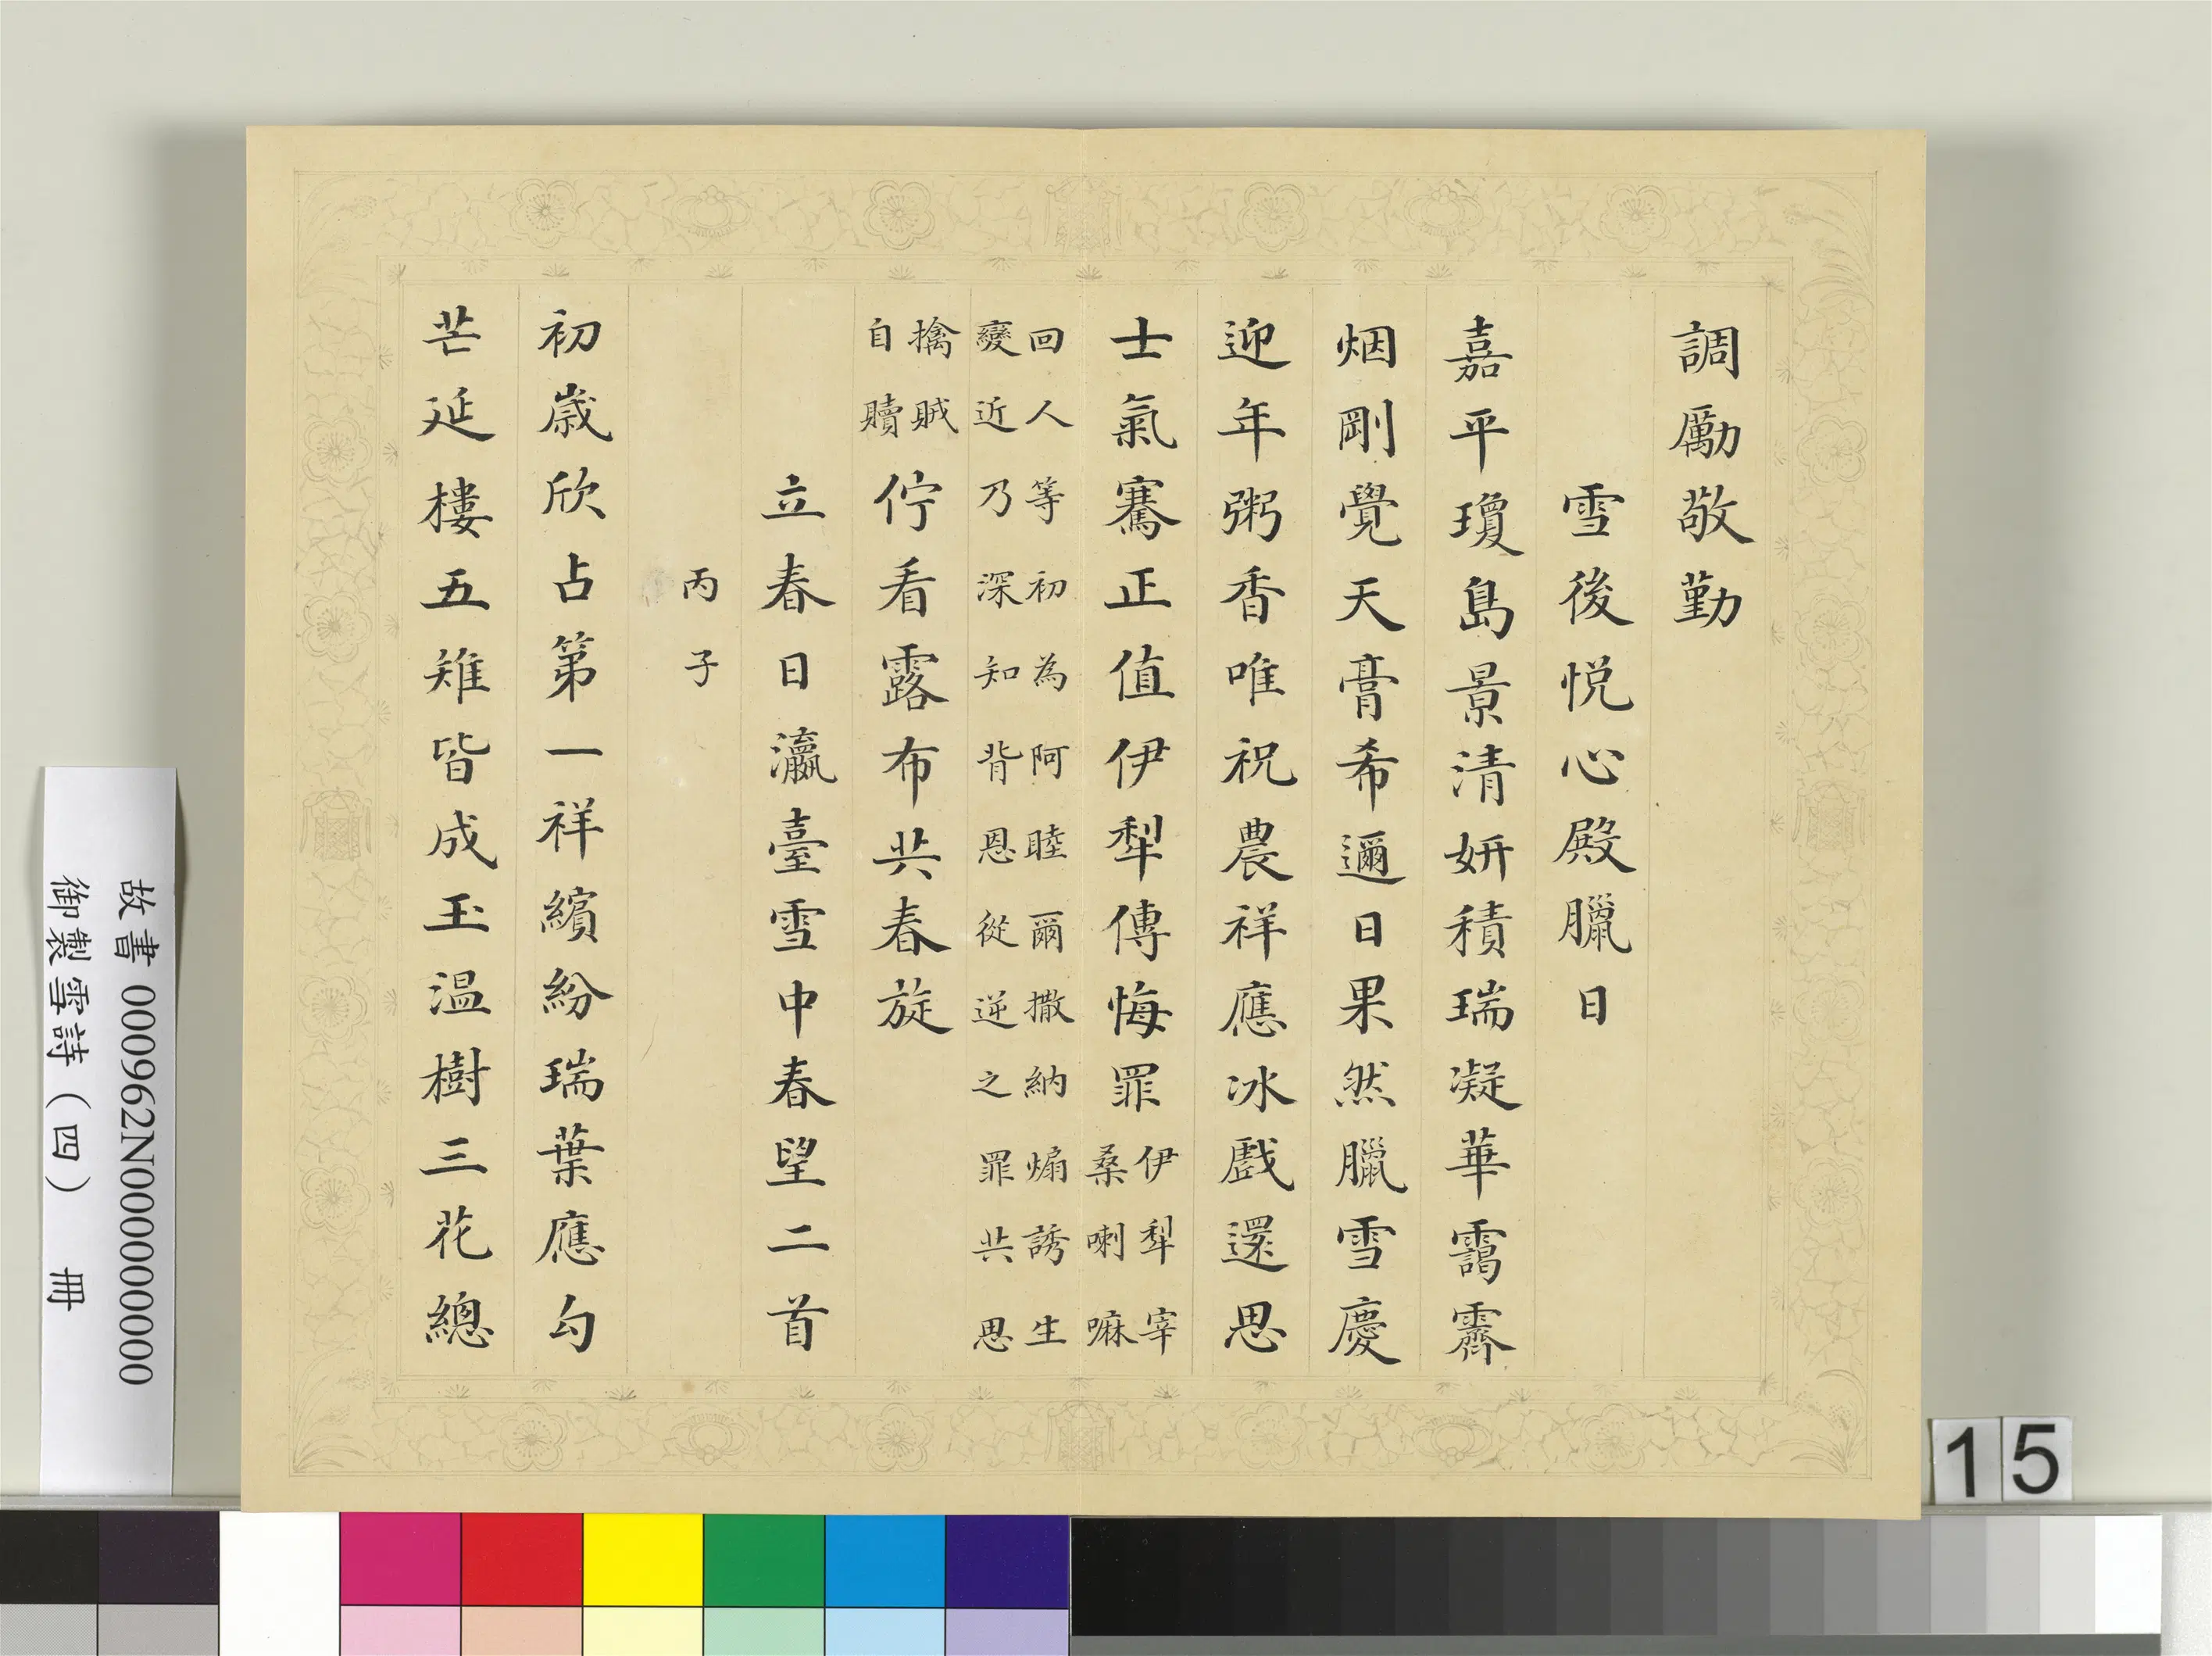 調勵敬勤
雪後悦心殿臘日
嘉平瓊島景清妍積瑞凝華靄霽
烟剛覺天膏希邇日果然臘雪慶
迎年粥香唯祝農祥應冰戲還思
士氣騫正值伊犁傳悔罪伊犁宰
桑喇嘛
回人等初為阿睦爾撒納煽誘生
變近乃深知背恩從逆之罪共思
擒賊
自贖佇看露布共春旋
立春日瀛臺雪中春望二首
丙子
初歲欣占第一祥繽紛瑞葉應勾
芒延樓五雉皆成玉温樹三花總
故書 000962N000000000
御製雪詩（四） 冊
15